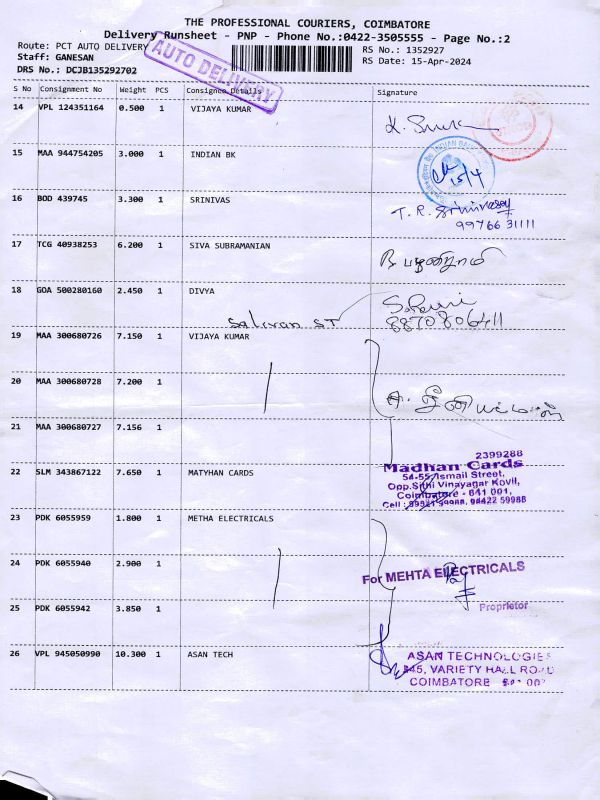 THE PROFESSIONAL COURIERS, COIMBATORE
Delivery Runsheet - PNP - Phone No.:0422-3505555 - Page No.:2
Route: PCT AUTO DELIVERY
RS No.: 1352927
Staff: GANESAN
RS Date: 15-Apr-2024
DRS No.: DCJB135292702
AUTO DELIVERY
S No Consignment No Weight PCS Consignee Details Signature
14 VPL 124351164 0.500 1 VIJAYA KUMAR
15 MAA 944754205 3.000 1 INDIAN BK
INDIAN BANK
15/4
16 BOD 439745 3.300 1 SRINIVAS
T. R. Srinivasan
99766 31111
17 TCG 40938253 6.200 1 SIVA SUBRAMANIAN
18 GOA 500280160 2.450 1 DIVYA
8870806411
19 MAA 300680726 7.150 1 VIJAYA KUMAR
20 MAA 300680728 7.200 1
21 MAA 300680727 7.156 1
2399288
22 SLM 343867122 7.650 1 MATYHAN CARDS
Madhan Cards
54-55, Ismail Street,
Opp.Sithi Vinayagar Kovil,
Coimbatore - 641 001,
23 PDK 6055959 1.800 1 METHA ELECTRICALS
24 PDK 6055940 2.900 1
For MEHTA ELECTRICALS
25 PDK 6055942 3.850 1
Proprietor
26 VPL 945050990 10.300 1 ASAN TECH
ASAN TECHNOLOGIES
VARIETY HALL ROAD
COIMBATORE